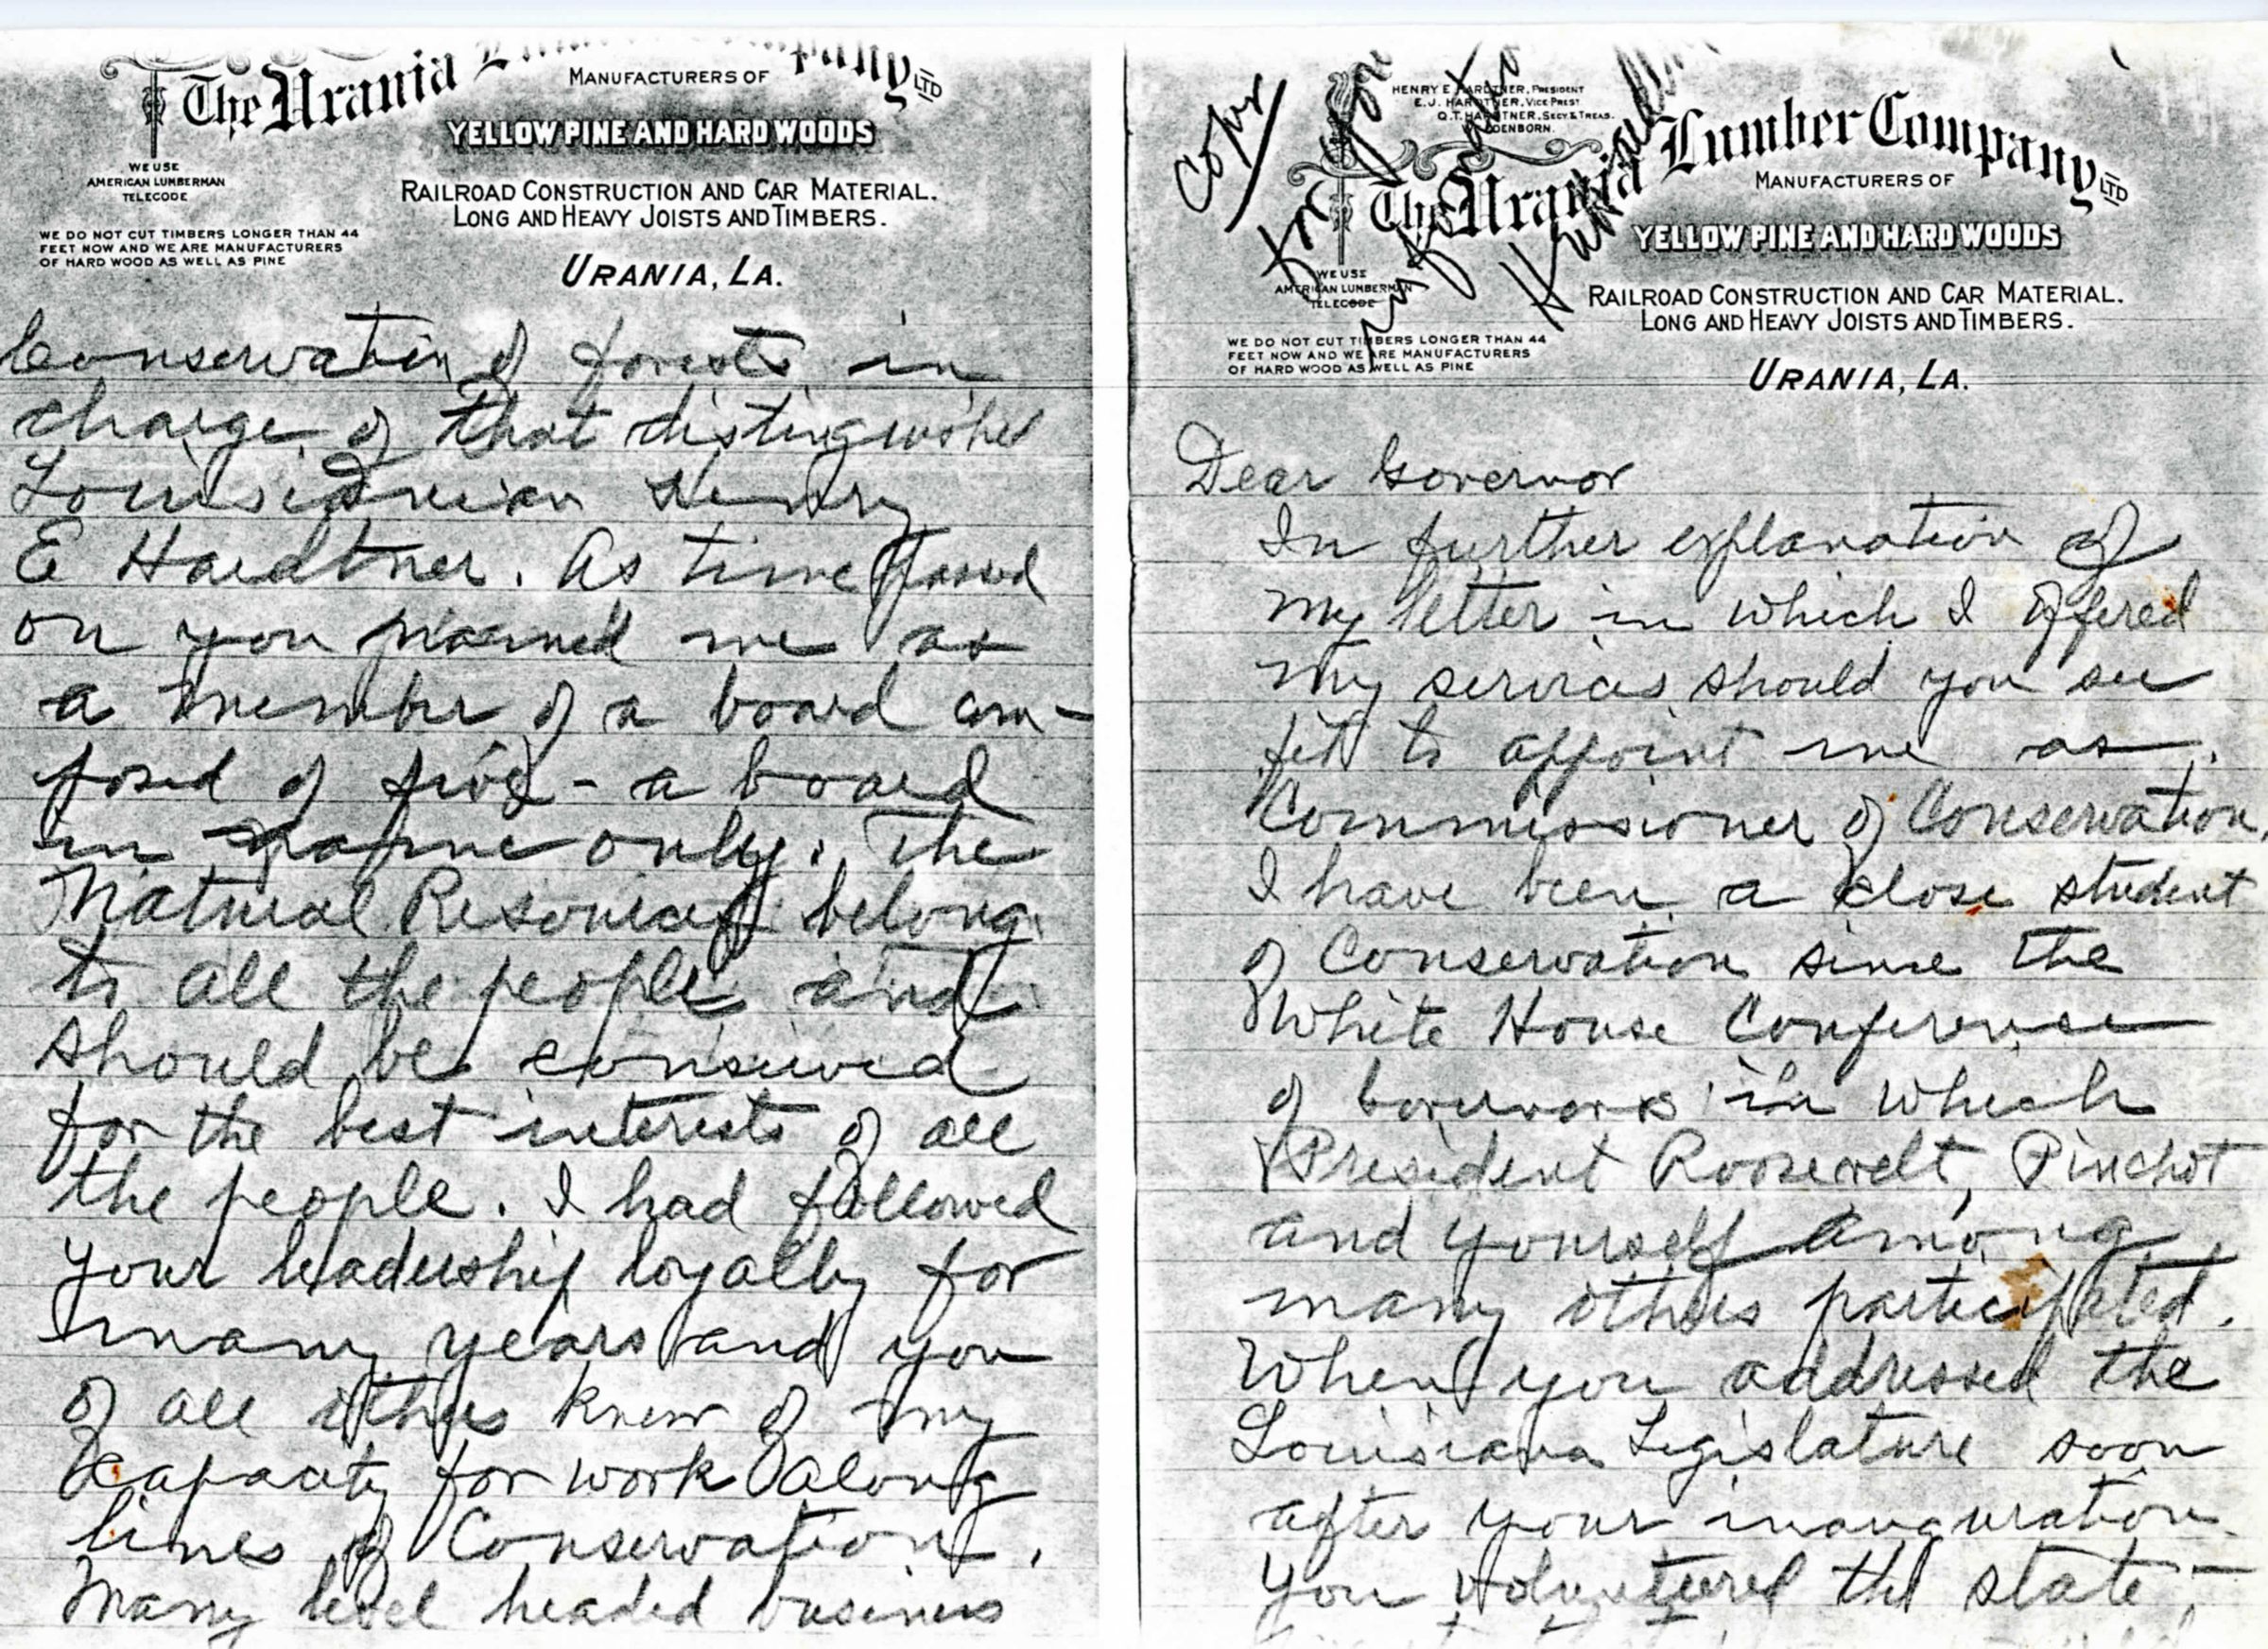 The Urania Company LTD
MANUFACTURERS OF
YELLOW PINE AND HARD WOODS
RAILROAD CONSTRUCTION AND CAR MATERIAL.
LONG AND HEAVY JOISTS AND TIMBERS.
WE USE
AMERICAN LUMBERMAN
TELECODE
WE DO NOT CUT TIMBERS LONGER THAN 44
FEET NOW AND WE ARE MANUFACTURERS
OF HARD WOOD AS WELL AS PINE
URANIA, LA.
Conservation of forests in
charge of that distinguished
Louisianian Henry
E Hardtner. As time passed
on you named me as
a member of a board com-
posed of five - a board
in name only. The
Natural Resources belong
to all the people and
should be conserved
for the best interests of all
the people. I had followed
your leadership loyally for
many years and you
of all others knew of my
capacity for work along
lines of Conservation.
Many level headed business
Copy
HENRY E HARDTNER, PRESIDENT
E.J. HARDTNER, VICE PREST
Q.T. HARDTNER, SECY & TREAS.
The Urania Lumber Company LTD
MANUFACTURERS OF
YELLOW PINE AND HARD WOODS
RAILROAD CONSTRUCTION AND CAR MATERIAL.
LONG AND HEAVY JOISTS AND TIMBERS.
WE USE
AMERICAN LUMBERMAN
TELECODE
WE DO NOT CUT TIMBERS LONGER THAN 44
FEET NOW AND WE ARE MANUFACTURERS
OF HARD WOOD AS WELL AS PINE
URANIA, LA.
Dear Governor
In further explanation of
my letter in which I offered
my services should you see
fit to appoint me as
Commissioner of Conservation
I have been a close student
of Conservation since the
White House Conference
of Governors in which
President Roosevelt, Pinchot
and yourself among
many others participated.
When you addressed the
Louisiana Legislature soon
after your inauguration
you volunteered the state